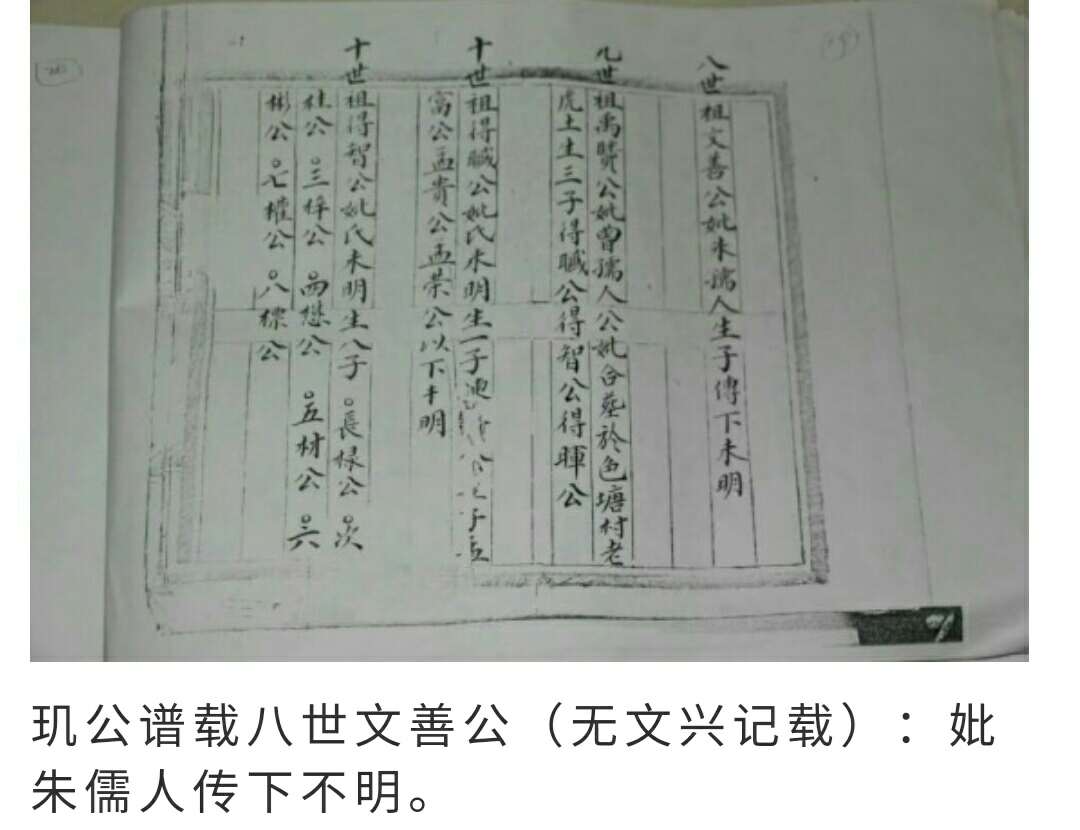 八世祖文善公妣朱孺人生子傳下未明
九世祖禹賢公妣曾孺人公妣合墓於色塘村老
虎土生三子得職公得智公得暉公
十世祖得職公妣氏未明生一子
富公孟貴公孟荣公以下未明
十世祖得智公妣氏未明生八子 長禄公 次
桂公 三梓公 四懋公 五材公 六
彬公 七權公 八標公
7
玑公谱载八世文善公（无文兴记载）：妣
朱儒人传下不明。